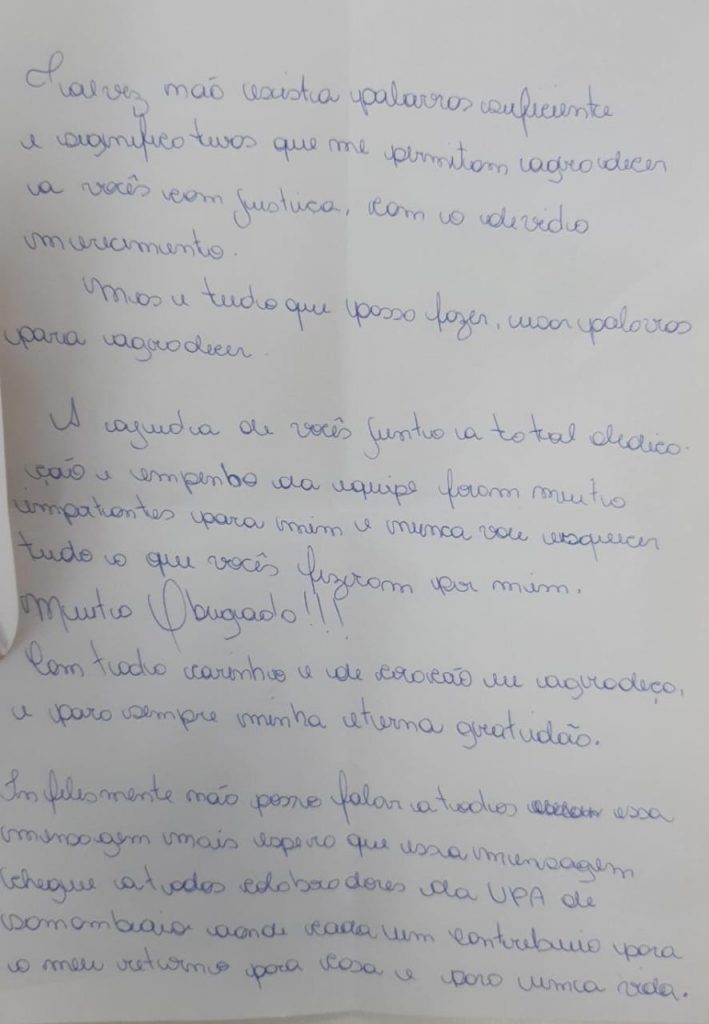 Talvez não exista palavras suficiente
e significativas que me permitam agradecer
a vocês com justiça, com o devido
merecimento.
Mas e tudo que posso fazer, usar palavras
para agradecer.
A ajuda de vocês junto a total dedica-
ção e empenho da equipe foram muito
impatantes para mim e nunca vou esquecer
tudo o que vocês fizeram por mim.
Muito Obrigado!!!
Com todo carinho e de coração eu agradeço,
e para sempre minha eterna gratudão.
Infelesmente não posso falar a todos essa
mensagem mais espero que essa mensagem
chegue a todos colobradores da UPA de
samambaia aonde cada um contribuio para
o meu retorno para casa e para vida.